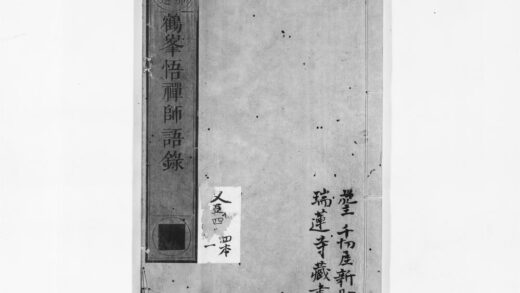 鶴峯悟禪師語錄
千切屋新
瑞蓮寺藏書
又
四
四本
一